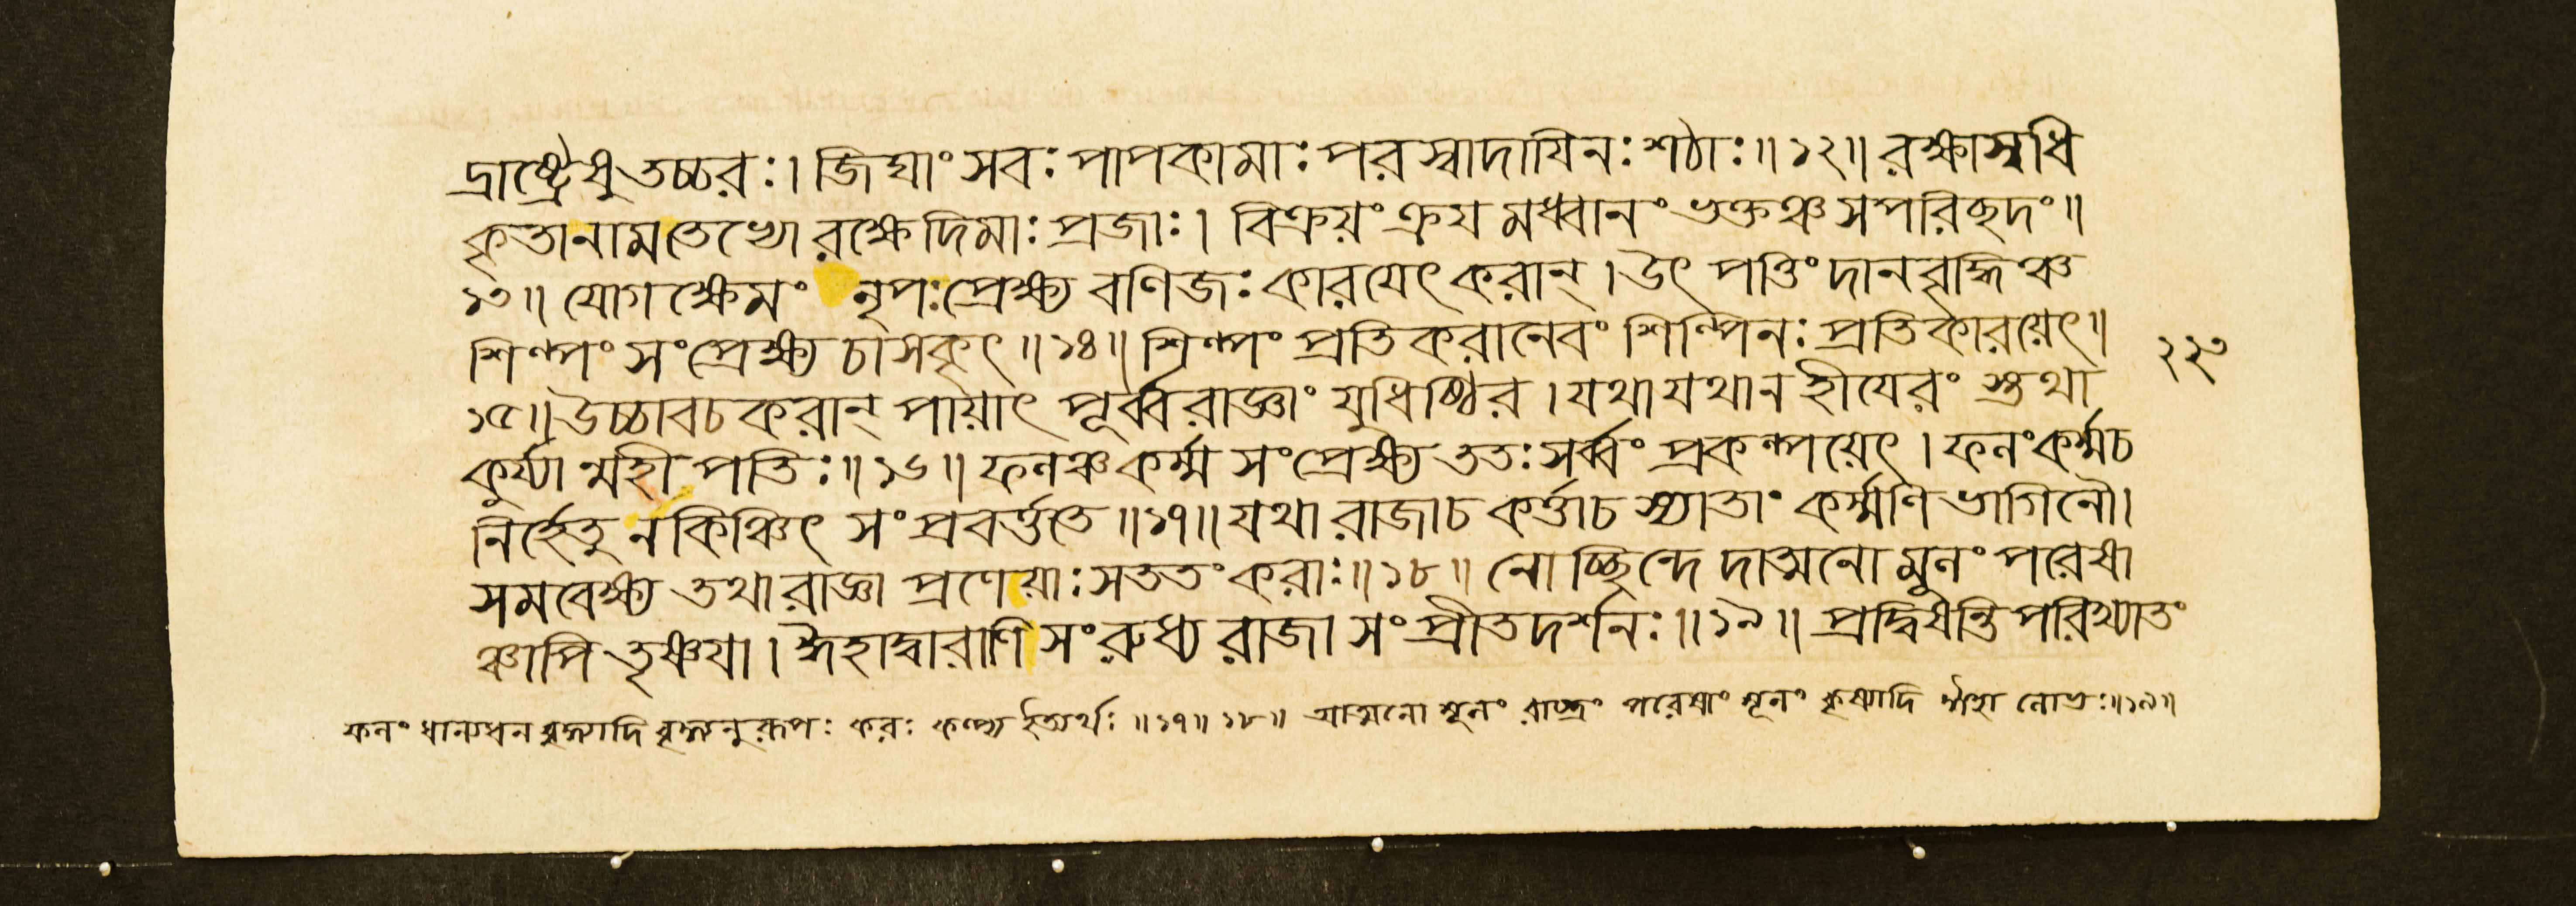 দ্রাষ্ট্রেষু তচ্চরঃ। জিঘাং সবঃ পাপকামাঃ পরস্বাদাযিনঃ শঠাঃ॥ ১২॥ রক্ষাস্বধি
কৃতানামতেখো রক্ষেদিমাঃ প্রজাঃ। বিক্রয়ং ক্রয মধ্বানং ভক্তঞ্চ সপরিছদং॥
১৩॥ যোগ ক্ষেমং নৃপঃ প্রেক্ষ্য বণিজঃ কারযেৎ করান্। উৎ পত্তিং দানবৃদ্ধিঞ্চ
শিল্পং সংপ্রেক্ষ্য চাসকৃৎ॥ ১৪॥ শিল্পং প্রতিকরানেবং শিল্পিনঃ প্রতিকারয়েৎ॥
২২৩
১৫॥ উচ্চাবচ করান্ পায়াৎ পূর্ব্বরাজ্ঞাং যুধিষ্ঠির। যথা যথান হীযেরং স্তথা
কুর্য্যা ন্মহী পতিঃ॥ ১৬॥ ফলঞ্চ কর্ম্ম সংপ্রেক্ষ্য ততঃ সর্ব্বং প্রকল্পয়েৎ। ফলং কর্ম্মচ
নির্হেতু ন কিঞ্চিৎ সংপ্রবর্ত্ততে॥ ১৭॥ যথা রাজাচ কর্ত্তাচ স্যাতাং কর্ম্মণি ভাগিনৌ।
সমবেক্ষ্য তথা রাজ্ঞা প্রণেয়াঃ সততং করাঃ॥ ১৮॥ নোচ্ছিন্দে দাত্মনো মূলং পরেষা
ঞ্চাপি তৃষ্ণযা। ঈহাদ্বারাণি সংরুধ্য রাজা সংপ্রীতদর্শনঃ॥ ১৯॥ প্রদ্বিষন্তি পরিখ্যাতং
ফলং ধান্যধন বৃদ্ধ্যাদি বৃদ্ধ্যনুরূপঃ করঃ কল্প্য ইত্যর্থঃ॥ ১৭॥ ১৮॥ আত্মনো মূলং রাষ্ট্রং পরেষাং মূলং কৃষ্যাদি ঈহা লোভঃ॥ ১৯॥